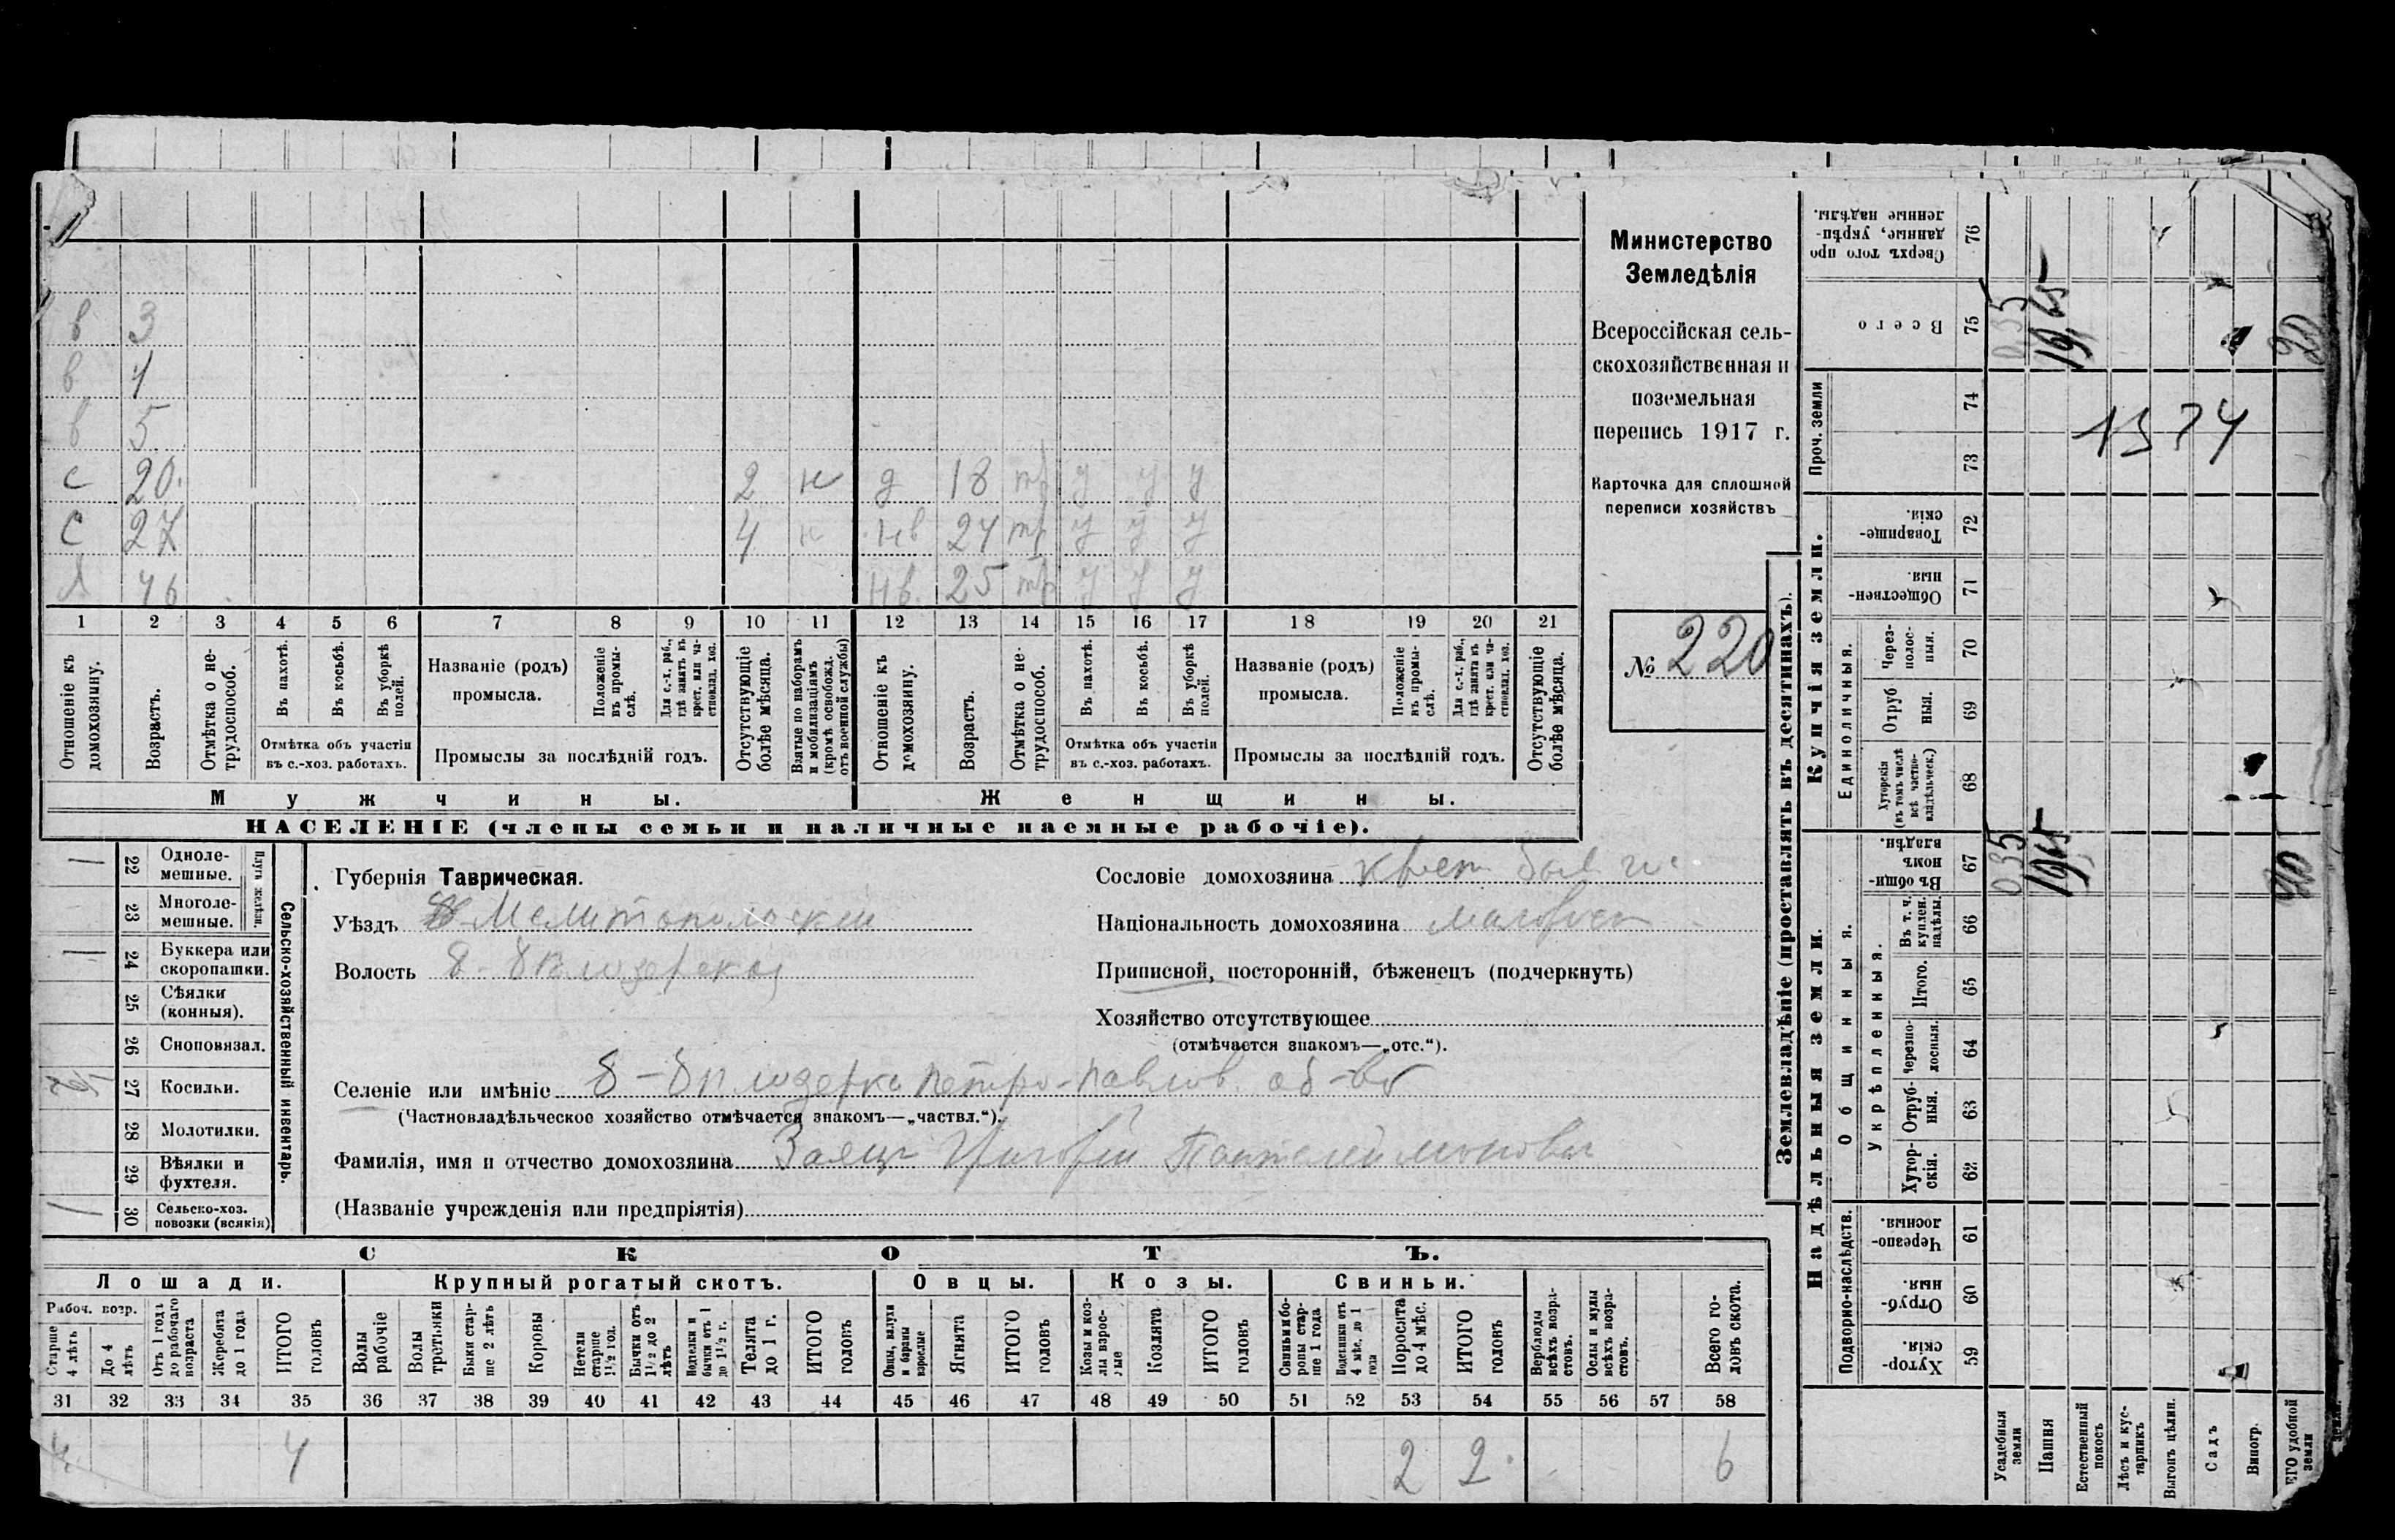 в 3
в 4
в 5
с 20. 2 н д 18 тр у у у
с 27 4 н нв 24 тр у у у
Я 46 нв. 25 тр у у у
1 2 3 4 5 6 7 8 9 10 11 12 13 14 15 16 17 18 19 20 21
Отношеніе къ домохозяину.
Возрастъ.
Отмѣтка о нетрудоспособ.
Въ пахотѣ.
Въ косьбѣ.
Въ уборкѣ полей.
Отмѣтка объ участіи
въ с.-хоз. работахъ.
Названіе (родъ)
промысла.
Положеніе въ промыслѣ.
Для с.-х. раб., гдѣ занятъ въ крест. или частновлад. хоз.
Промыслы за послѣдній годъ.
Отсутствующіе болѣе мѣсяца.
Взятые по наборамъ и мобилизаціямъ (кромѣ освобожд. отъ военной службы)
Отношеніе къ домохозяину.
Возрастъ.
Отмѣтка о нетрудоспособ.
Въ пахотѣ.
Въ косьбѣ.
Въ уборкѣ полей.
Отмѣтка объ участіи
въ с.-хоз. работахъ.
Названіе (родъ)
промысла.
Положеніе въ промыслѣ.
Для с.-х. раб., гдѣ занята въ крест. или частновлад. хоз.
Промыслы за послѣдній годъ.
Отсутствующіе болѣе мѣсяца.
Мужчины.
Женщины.
НАСЕЛЕНІЕ (члены семьи и наличные наемные рабочіе).
Министерство
Земледѣлія
Всероссійская сель-
скохозяйственная и
поземельная
перепись 1917 г.
Карточка для сплошной
переписи хозяйствъ
№ 220
22 Одноле-
мешные.
23 Многоле-
мешные.
Плуги желѣзн.
24 Буккера или
скоропашки.
25 Сѣялки
(конныя).
26 Сноповязал.
27 Косилки.
28 Молотилки.
29 Вѣялки и
фухтеля.
30 Сельско-хоз.
повозки (всякія)
Сельско-хозяйственный инвентарь.
Губернія Таврическая.
Уѣздъ Мелитопольскій
Волость Б-Бѣлозерская
Селеніе или имѣніе Б-Бѣлозерка Петро-Павлов. об-во
(Частновладѣльческое хозяйство отмѣчается знакомъ—„частвл.“).
Фамилія, имя и отчество домохозяина Заяцъ Григорій Пантелеймоновъ
(Названіе учрежденія или предпріятія)
Сословіе домохозяина крест
Національность домохозяина малорос
Приписной, посторонній, бѣженецъ (подчеркнуть)
Хозяйство отсутствующее
(отмѣчается знакомъ—„отс.“).
СКОТЪ.
Лошади. Крупный рогатый скотъ. Овцы. Козы. Свиньи.
Рабоч. возр.
Старше 4 лѣтъ
До 4 лѣтъ
Отъ 1 года до рабочаго возраста
Жеребята до 1 года
ИТОГО головъ
Волы рабочіе
Волы третьяки
Быки старше 2 лѣтъ
Коровы
Нетели старше 1½ год.
Бычки отъ 1½ до 2 лѣтъ
Подтелки и бычки отъ 1 до 1½ г.
Телята до 1 г.
ИТОГО головъ
Овцы, валухи и бараны взрослые
Ягнята
ИТОГО головъ
Козы и козлы взрослые
Козлята
ИТОГО головъ
Свиньи и боровы старше 1 года
Подсвинки отъ 4 мѣс. до 1 года
Поросята до 4 мѣс.
ИТОГО головъ
Верблюды всѣхъ возрастовъ.
Ослы и мулы всѣхъ возрастовъ.
Всего головъ скота.
31 32 33 34 35 36 37 38 39 40 41 42 43 44 45 46 47 48 49 50 51 52 53 54 55 56 57 58
4 4 2 2 6
Землевладѣніе (проставлять въ десятинахъ).
Сверхъ того проданные, укрѣпленные надѣлы. 76
Всего 75 0,35 19,65 20
Проч. земли 74 73
1374
Купчія земли.
Товарищескія. 72
Общественныя. 71
Единоличныя.
Черезполосныя. 70
Отрубныя. 69
Хуторскія (въ томъ числѣ всѣ частновладѣльческ.) 68
Надѣльныя земли.
Общинныя.
Въ общинномъ владѣн. 67 0,35 19,65 20
Укрѣпленныя.
Въ т. ч. куплен. надѣлы. 66
Итого. 65
Черезполосныя. 64
Отрубныя. 63
Хуторскія. 62
Подворно-наслѣдств.
Черезполосныя. 61
Отрубныя. 60
Хуторскія. 59
Усадебныя земли
Пашня
Естественный покосъ
Лѣсъ и кустарникъ
Выгонъ цѣлин.
Садъ
Виногр.
ЕГО удобной земли